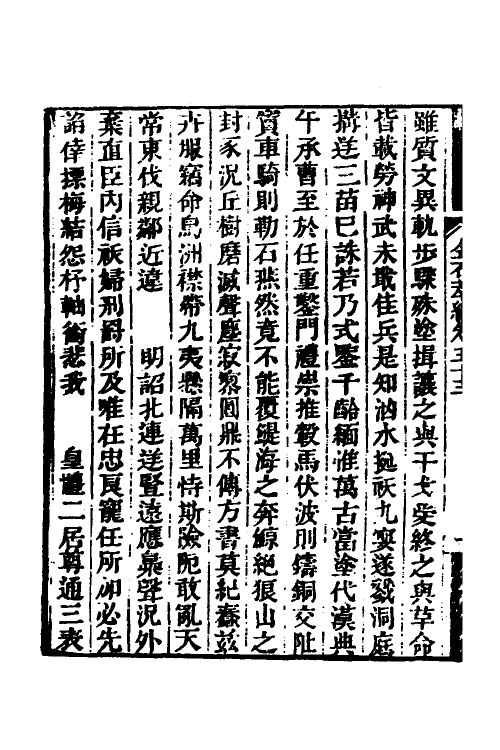 雖質文異軌步驟殊塗揖讓之與干戈受終之與草命
皆載勞神武未戢佳兵是知洶水挻祅九嬰遂戮洞庭
搆逆三苗已誅若乃式鑒千齡緬惟萬古當塗代漢典
午承曹至於任重鑿門禮崇推轂馬伏波則鑄銅交阯
竇車騎則勒石燕然竟不能覆鯷海之奔鯨絕狼山之
封豕況丘樹磨滅聲塵寂寥圓鼎不傳方書莫紀蠢茲
卉服竊命島洲襟帶九夷懸隔萬里恃斯險阨敢亂天
常東伐親鄰近違 明詔北連逆豎遠應梟聲況外
棄直臣內信祅婦刑罰所及唯在忠良寵任所加必先
諂倖摽梅結怨杼軸銜悲我 皇體二居尊通三表
金石萃編卷五十三